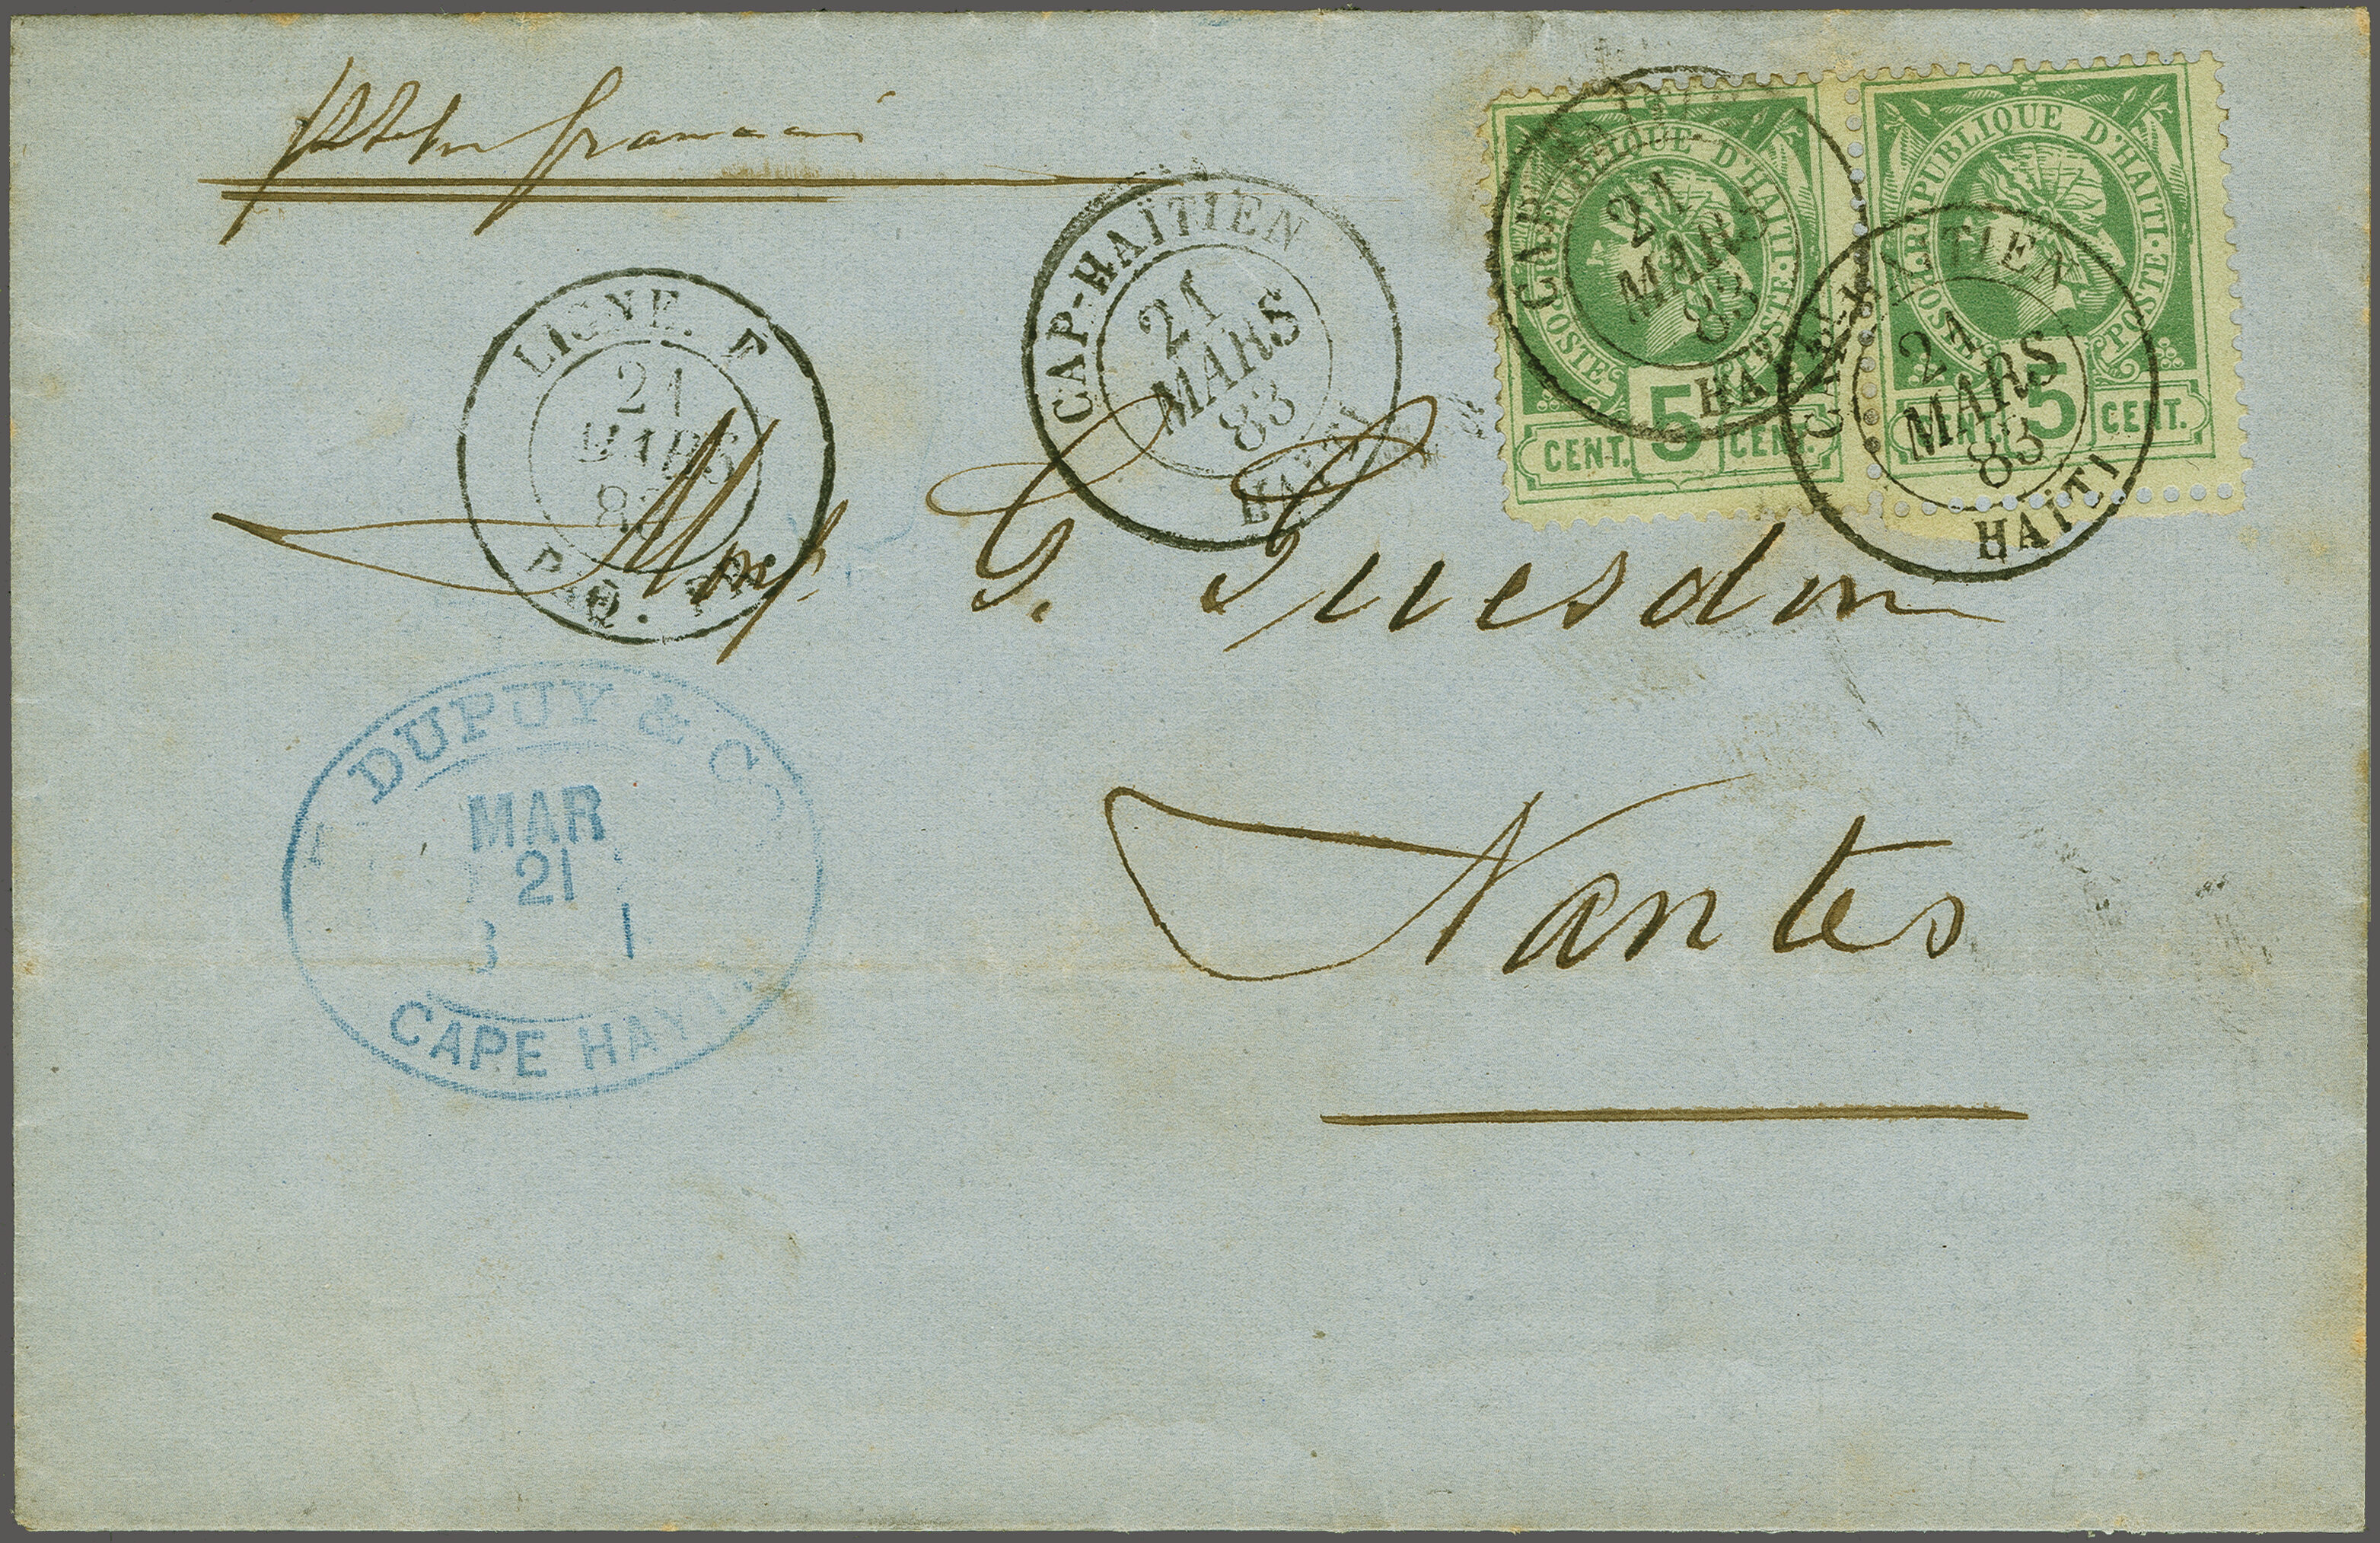 français
CAP-HAÏTIEN
21
MARS
83
HAÏTI
LIGNE. F
21
MARS
PAQ. FR.
REPUBLIQUE D'HAITI
POSTE
POSTE
CENT. 5 CENT.
CAP-HAÏTIEN
21
MARS
83
HAÏTI
REPUBLIQUE D'HAITI
POSTE
POSTE
CENT. 5 CENT.
CAP-HAÏTIEN
21
MARS
83
HAÏTI
G. Guesdon
DUPUY & Co
MAR
21
CAPE HAYTI
Nantes